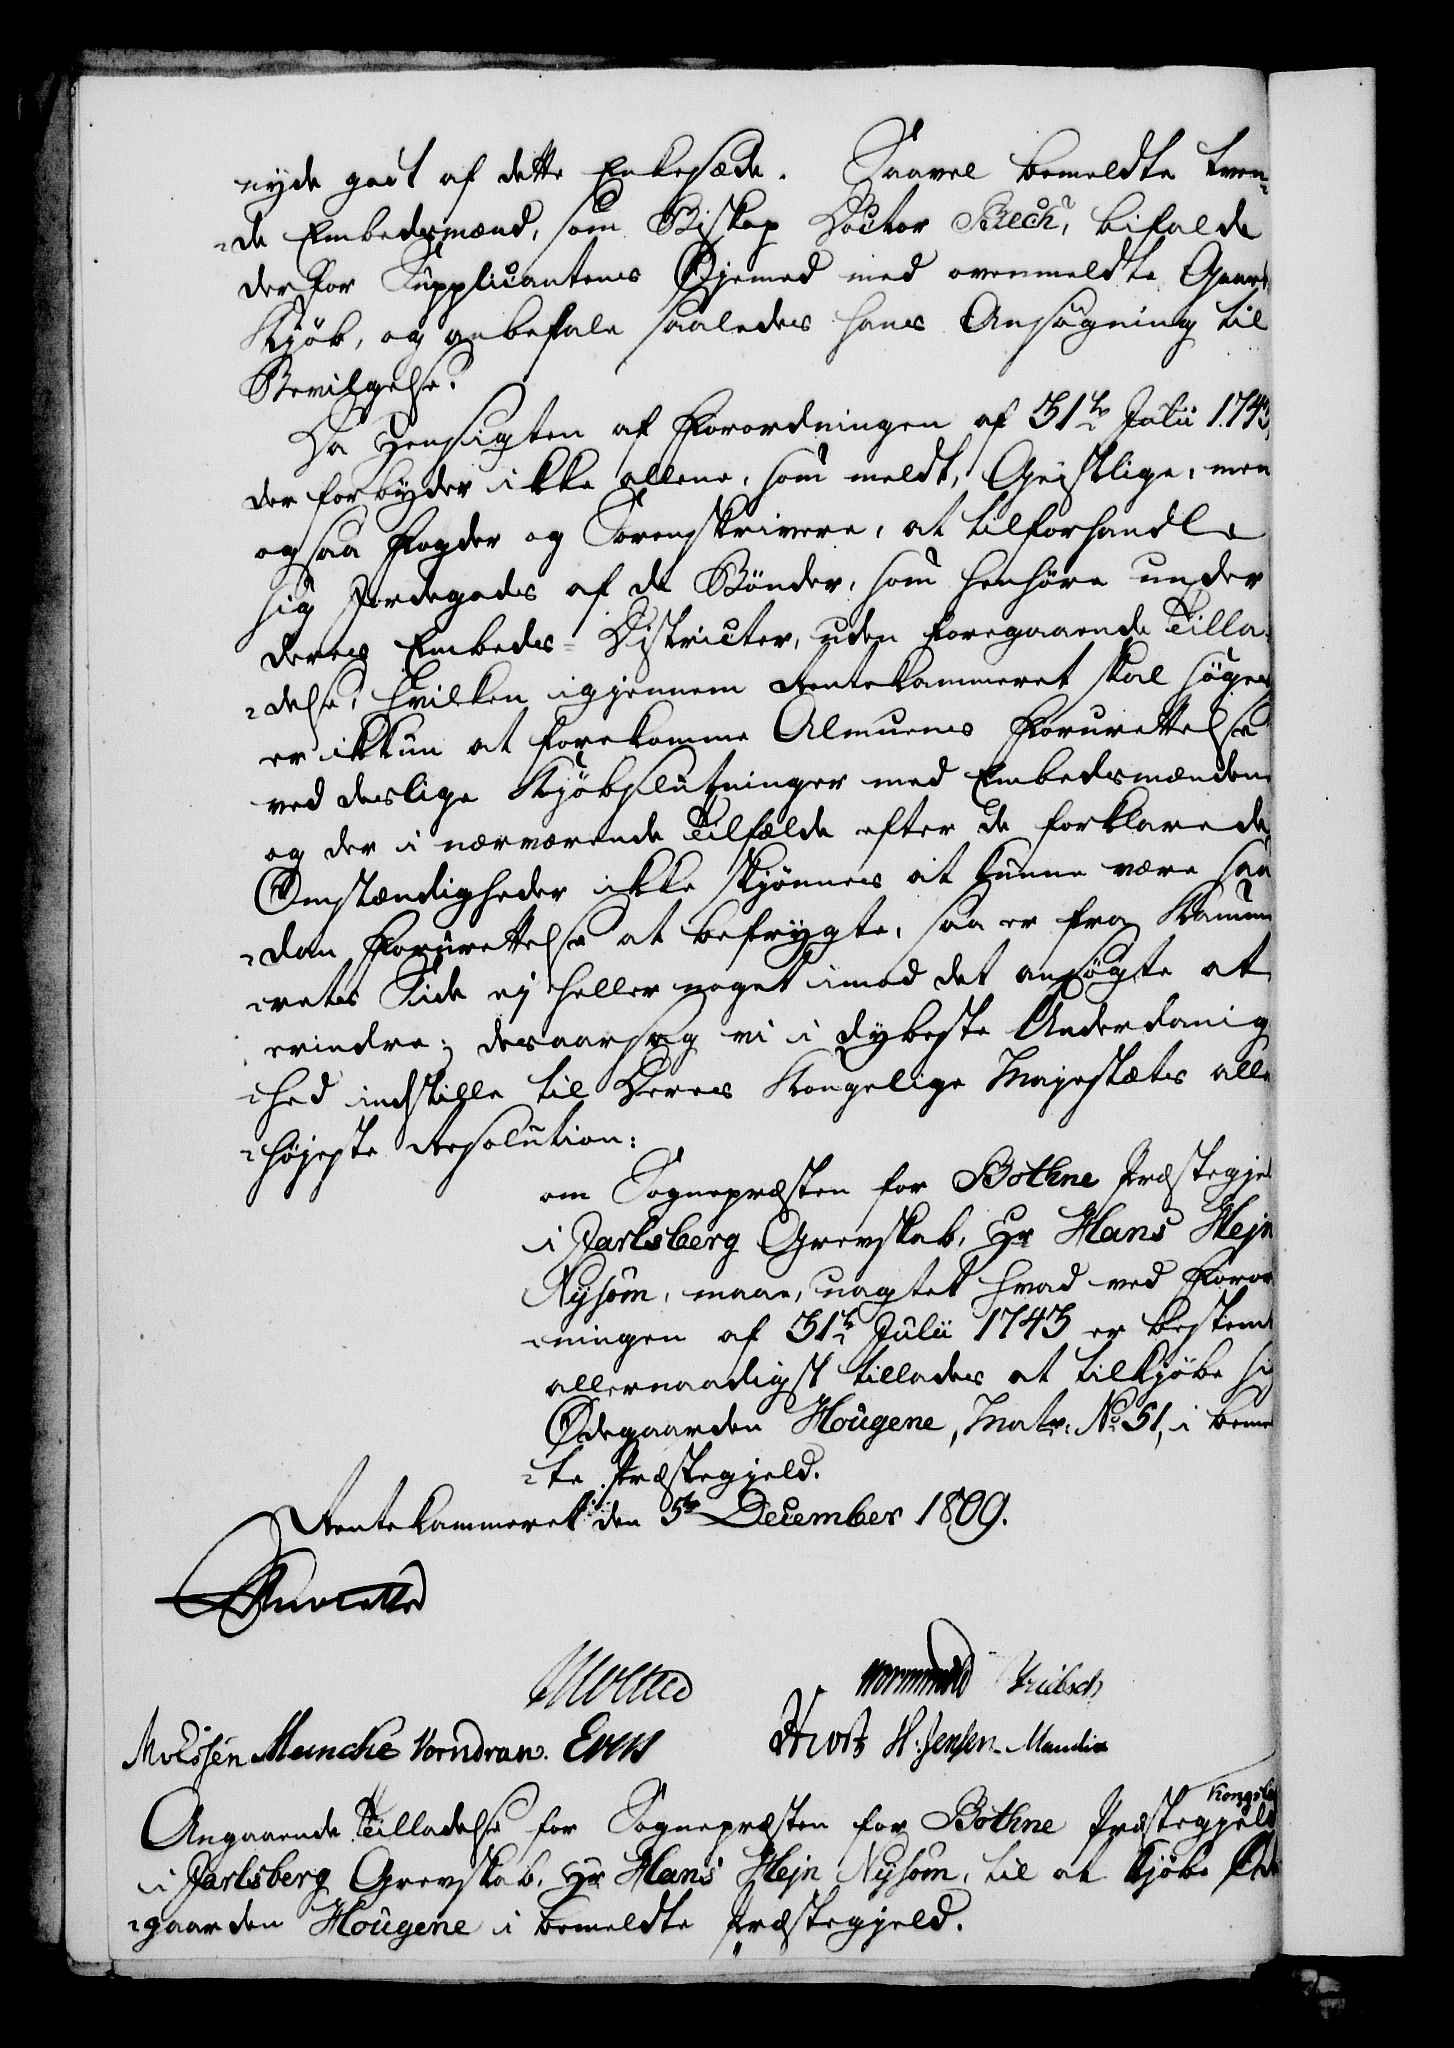 nyde godt af dette Enkesæde. Saavel bemeldte tven-
-de Embedsmænd, som Biskop Doctor Bech, bifalde
derfor Supplicantens Øjemed med ovenmeldte Gaard
Kjøb, og anbefale saaledes hans Ansøgning til
Bevilgelse.
Da Hensigten af Forordningen af 31te Julii 1743,
der forbyder ikke allene, som meldt, Geistlige, men
ogsaa Fogder og Sorenskrivere, at tilforhandle
sig Jordegods af de Bønder, som henhøre under
deres Embeds-Districter, uden foregaaende Tilla-
-delse, hvilken igjennem Rentekammeret skal søges,
er ikkun at forekomme Almuens Forurettelse
ved deslige Kjøbslutninger med Embedsmændene
og der i nærværende Tilfælde efter de forklarede
Omstændigheder ikke skjønnes at kunne være saa
-dan Forurettelse at befrygte, saa er fra Kamme
-rets Side ej heller noget imod det ansøgte at
erindre; desaarsag vi i dybeste Underdanig
-hed indstille til Deres Kongelige Majestæts aller
-højeste Resolution:
om Sognepræsten for Bothne Præstegjel
i Jarlsberg Grevskab, Hr Hans Hejn
Nysom, maae, uagtet hvad ved Foror
-ningen af 31te Julii 1743 er bestemt
allernaadigst tillades at tilkjøbe sig
Ødegaarden Hougene, Matr. No 51, i bemel
-te Præstegjeld.
Rentekammeret den 5te December 1809.
Moltke
Wormskiold
Monssen Muncke Vorndran. Evers H. Jensen. Mandix
Kongsb
Angaaende Tilladelse for Sognepræsten for Bothne Præstegjeld
i Jarlsberg Grevskab, Hr Hans Hejn Nysom, til at kjøbe Øde
-gaarden Hougene i bemeldte Præstegjeld.